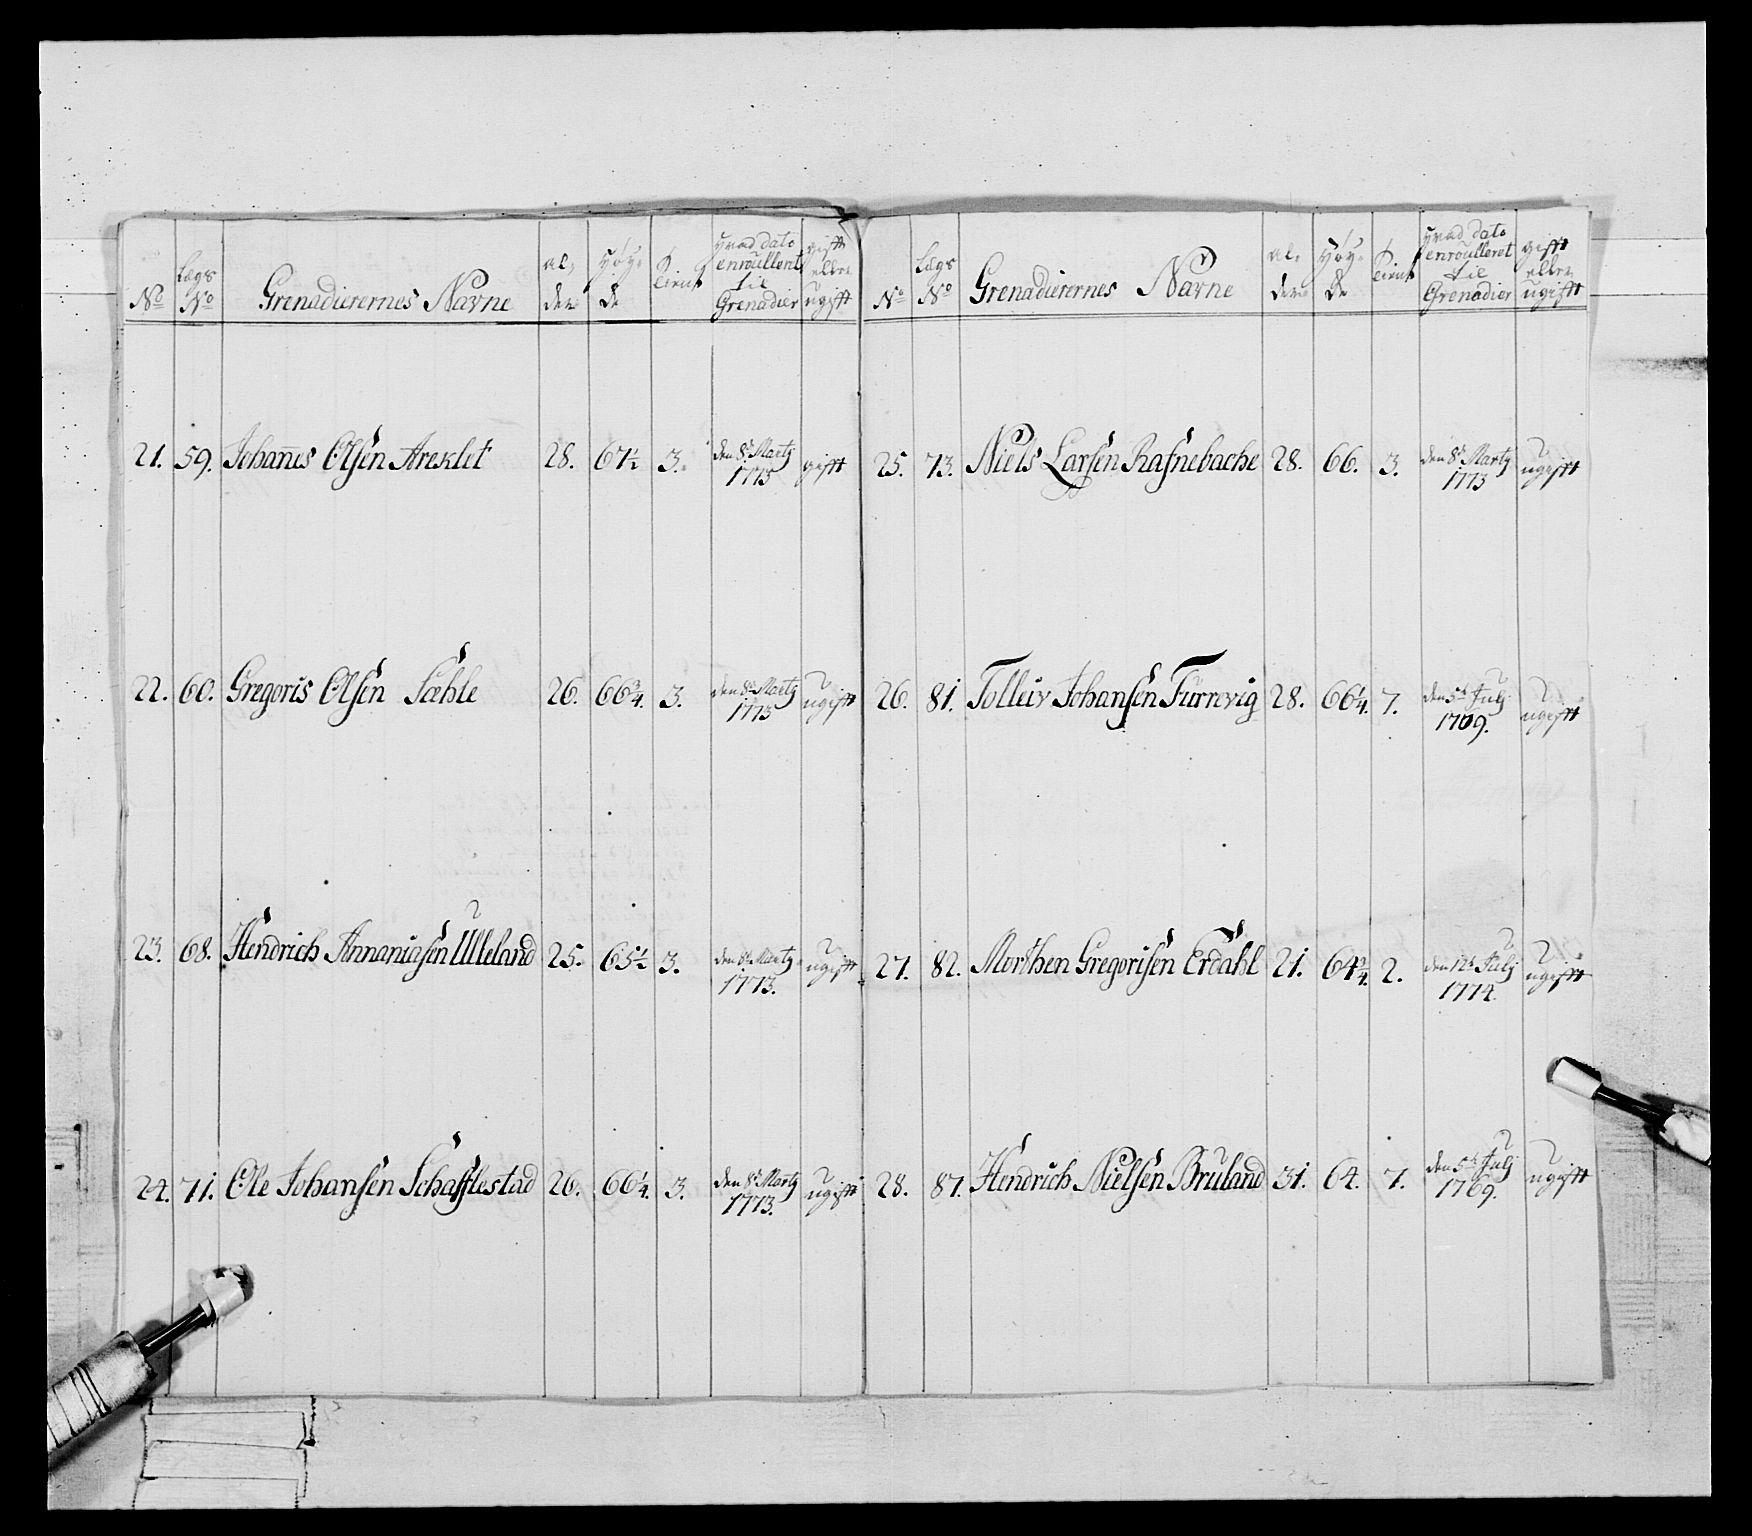 No Lægs No Grenadierernes Navne al, der Høy, de tienst Hvad dato enroulleret til Grenadier gifft eller ugifft
21. 59. Johanes Olsen Areklet 28. 67½ 3. den 8de Martj 1773 gifft
22. 60. Gregoris Olsen Sæhle 26. 66¾. 3. den 8de Martj 1773 ugifft
23. 68. Hendrich Annaniasen Ulleland 25. 65½ 3. den 8de Martj 1773. ugifft
24. 71. Ole Johansen Schafflestad 26. 66¼. 3. den 8de Martj 1773. ugifft
No Lægs No Grenadierernes Navne al, der Høy, de tienst Hvad dato enroulleret til Grenadier gifft eller ugifft
25. 73. Niels Larsen Rafnebache 28. 66. 3. den 8de Martj 1773 ugifft
26. 81. Tolleiv Johansen Furrevig 28. 66¼. 7. den 5te Julj 1769. ugifft
27. 82. Morthen Gregorisen Erdahl 21. 64¾. 2. den 12te Julj 1774. ugifft
28. 87. Hendrich Nielsen Bruland 31. 64. 7. den 5te Julj 1769. ugifft